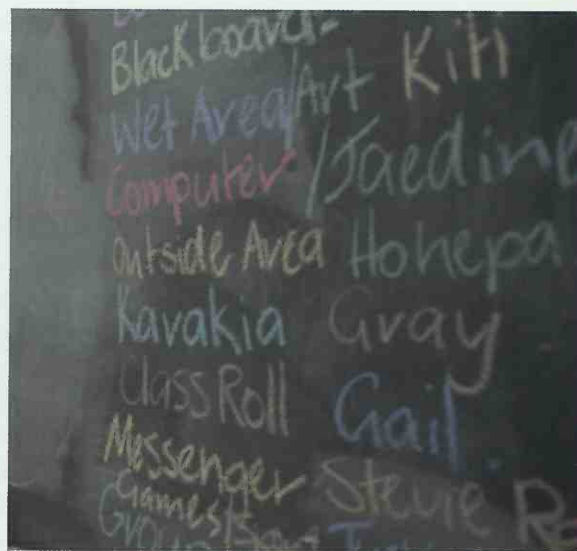 Blackboard
Wet Area/Art Kiti
Computer /Jaedine
Outside Area Hohepa
Karakia Gray
Class Roll Gail
Messenger Stevie
Games
Group